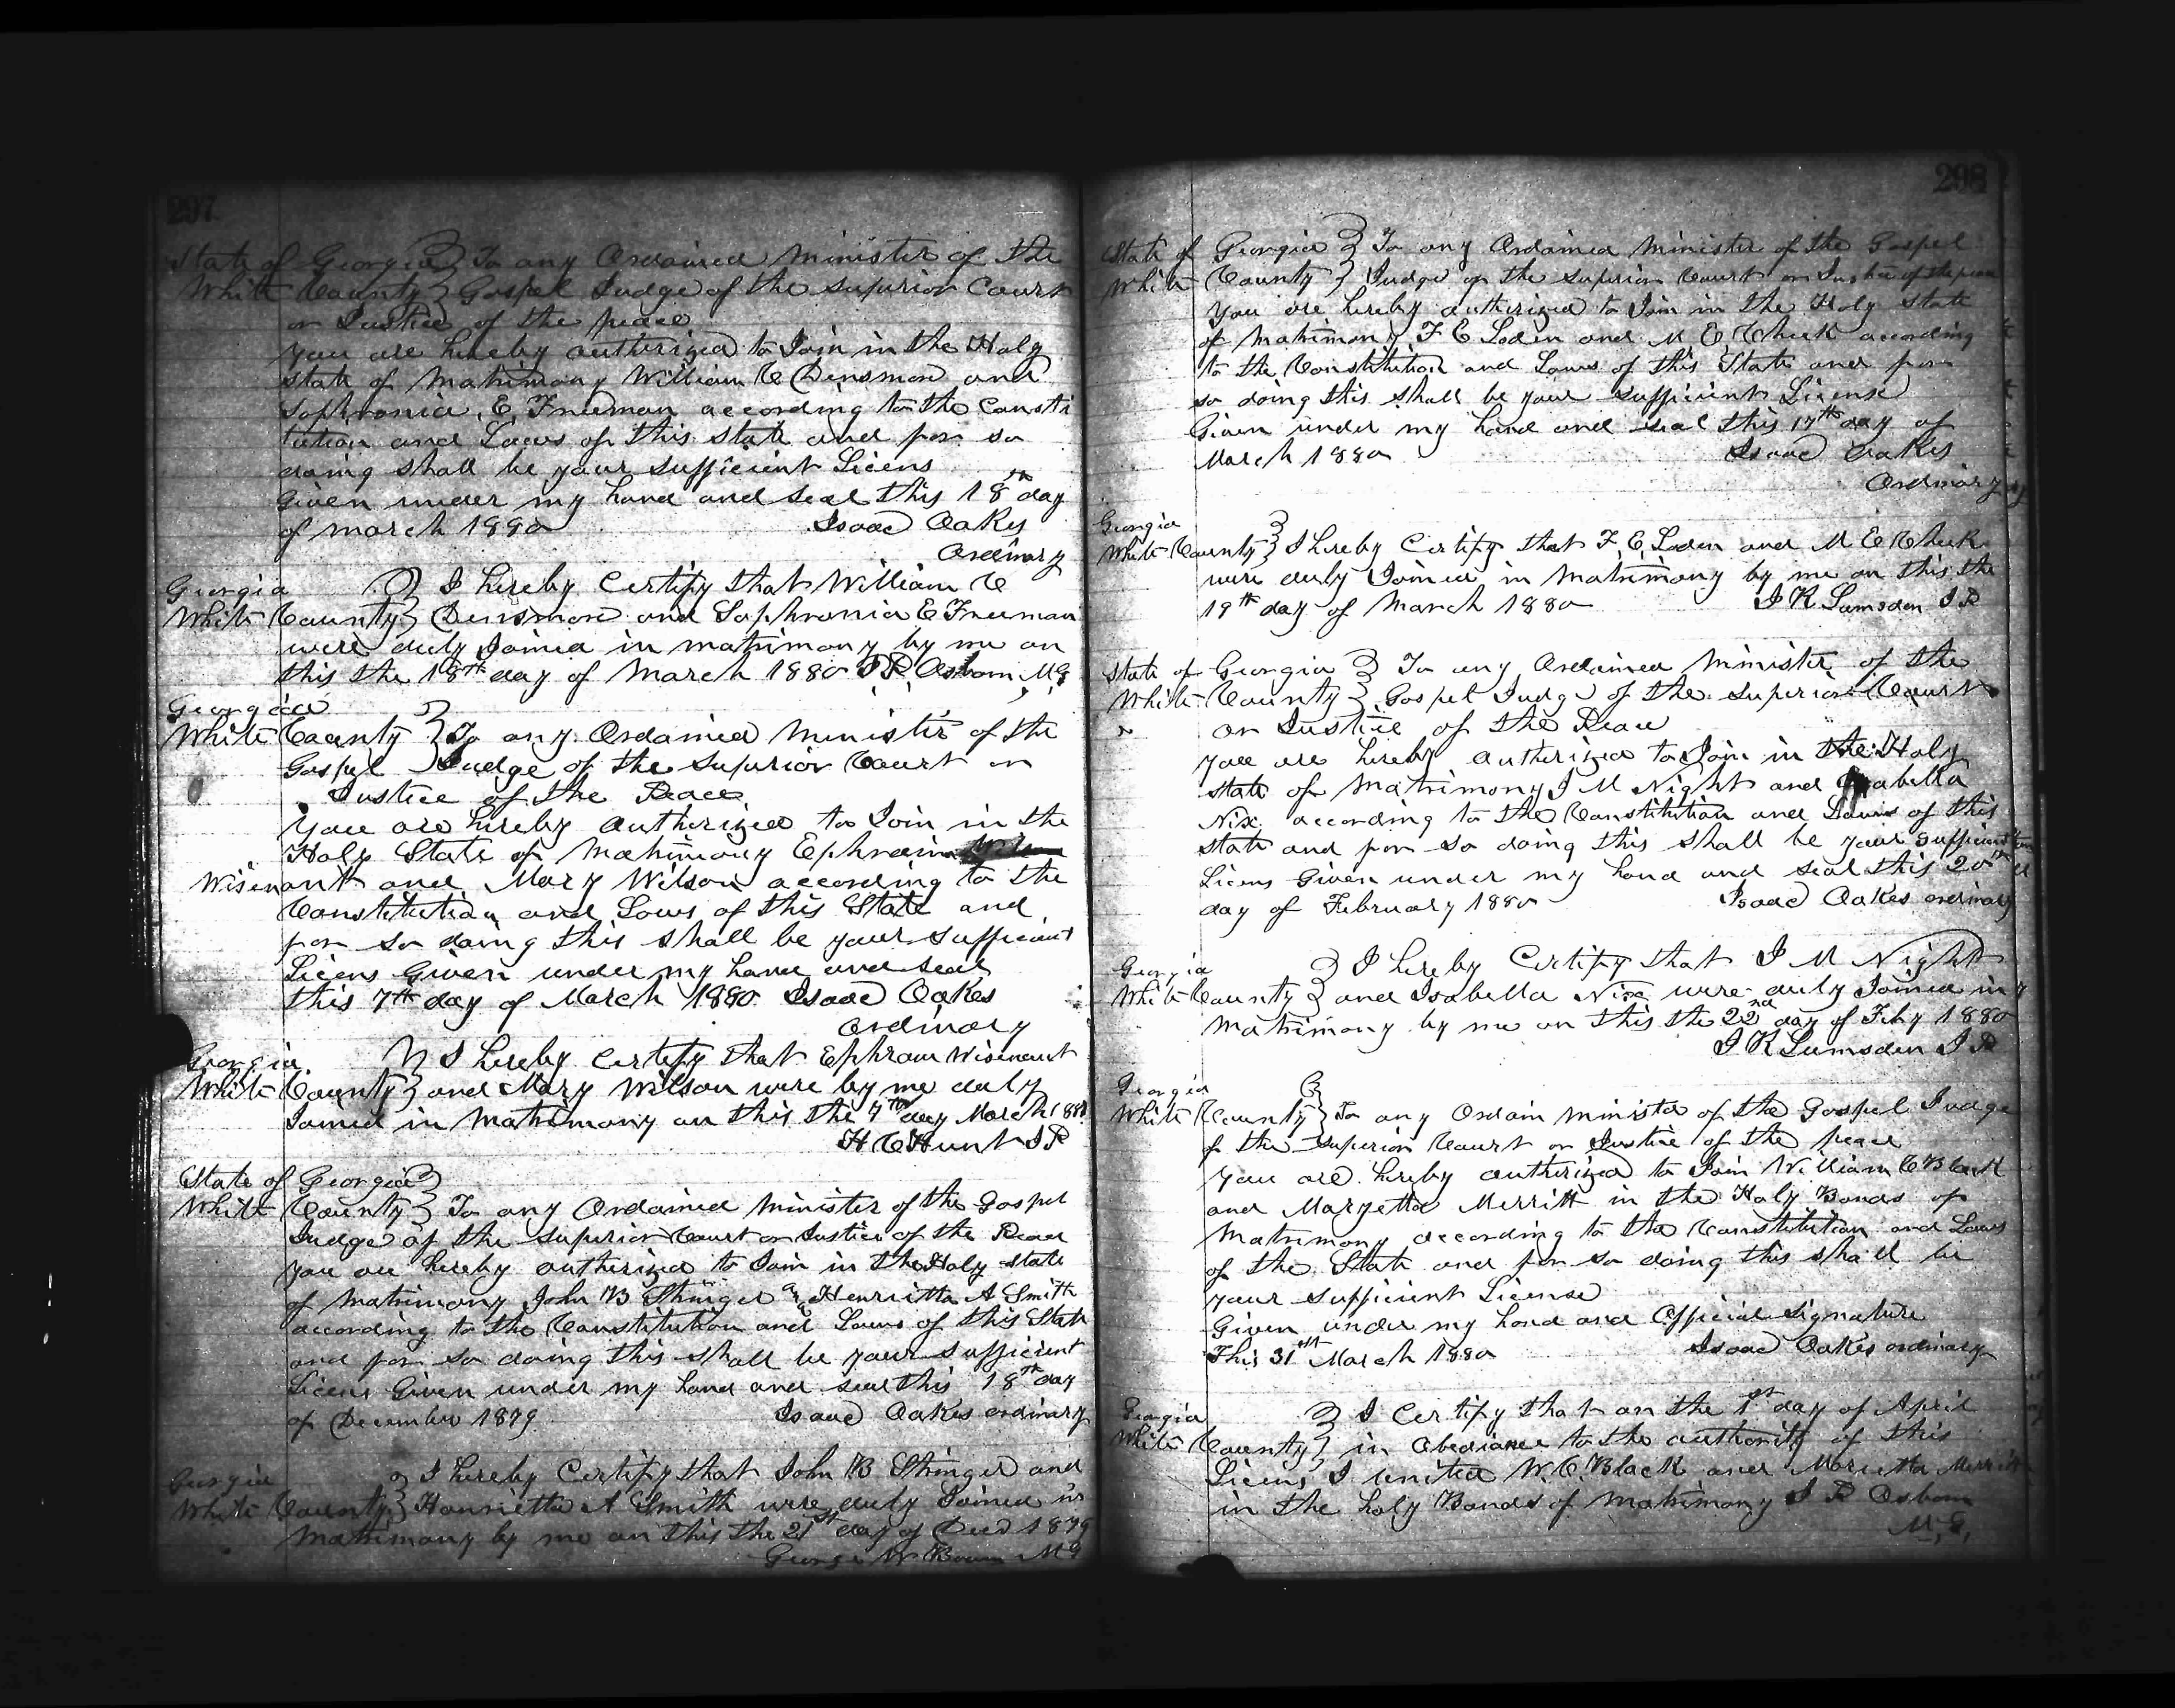 297
State of Georgia } To any Ordained Minister of the
White County } Gospel Judge of the Superior Court
or Justice of the peace
You are hereby authorized to Join in the Holy
State of Matrimony William C Densmore and
Sophronia E, Freeman according to the Consti
tution and Laws of this State and for so
doing shall be your sufficient Licens
Given under my hand and seal this 18th day
of March 1880 Isaac Oakes
Ordinary
Georgia } I hereby Certify that William C
White County } Densmore and Sophronia E Freeman
were duly Joined in matrimony by me on
this the 18th day of March 1880 I R Osborn M G
Georgia
White County } To any Ordained Minister of the
Gospel Judge of the Superior Court or
Justice of the Peace
You are hereby authorized to Join in the
Holy State of Matrimony Ephraim
Wisenant and Mary Wilson according to the
Constitution and Laws of this State and
for so doing this shall be your sufficient
Licens Given under my hand and seal
this 7th day of March 1880. Isaac Oakes
Ordinary
Georgia } I hereby Certify that Ephram Wisenant
White County } and Mary Wilson were by me duly
Joined in Matrimony on this the day March 1880
H C Hunt J P
State of Georgia }
White County } To any Ordained Minister of the Gospel
Judge of the Superior Court or Justice of the Peace
You are hereby authorized to Join in the Holy State
of Matrimony John B Stringer & Henrietta A Smith
according to the Constitution and Laws of this State
and for so doing this shall be your sufficient
Licens Given under my hand and seal this 18th day
of December 1879. Isaac Oakes ordinary
Georgia } I hereby Certify that John B Stringer and
White County } Henrietta A Smith were duly Joined in
Matrimony by me on this the 21st day of Decd 1879
George W M G
298
State of Georgia } To any Ordained Minister of the Gospel
White County } Judge of the Superior Court or Justice of the peace
You are hereby authorized to Join in the Holy State
of Matrimony F E Loden and M E Cheek according
to the Constitution and Laws of this State and for
so doing this shall be your sufficient License
Given under my hand and seal this 17th day of
March 1880 Isaac Oakes
Ordinary
Georgia
White County } I hereby Certify that F, E, Loden and M E Cheek
were duly Joined in Matrimony by me on this the
19th day of March 1880 J K Lumsden J P
State of Georgia } To any Ordained Minister of the
White County } Gospel Judge of the Superior Court
or Justice of the Peace
You are hereby authorized to Join in the Holy
State of Matrimony J M Night and Isabella
Nix according to the Constitution and Laws of this
State and for so doing this shall be your sufficient
Licens Given under my hand and seal this 20th
day of February 1880 Isaac Oakes ordinary
Georgia } I hereby Certify that J M Night
White County } and Isabella Nix were duly Joined in
Matrimony by me on this the 22nd day of Feby 1880
J K Lumsden J P
Georgia
White County } To any Ordain Minister of the Gospel Judge
of the Superior Court or Justice of the peace
You are hereby authorized to Join William C Black
and Maryetta Merritt in the Holy Bonds of
Matrimony according to the Constitution and Laws
of the State and for so doing this shall be
your sufficient License
Given under my hand and Official Signature
This 31st March 1880 Isaac Oakes ordinary
Georgia } I Certify that on the 1st day of April
White County } in Obediance to the authority of this
Licens I united W. C. Black and Marietta Merritt
in the holy Bonds of Matrimony I R Osborn
M, G,